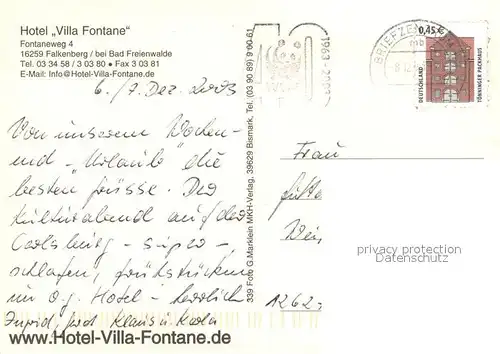 Hotel „Villa Fontane"
Fontaneweg 4
16259 Falkenberg / bei Bad Freienwalde
Tel. 03 34 58 / 3 03 80 • Fax 3 03 81
E-Mail: Info@Hotel-Villa-Fontane.de
6./7. Dez. 2003
Von unserem Wochen-
end - "Urlaub" die
besten Grüsse. Der
Kulturabend auf der
Carlsburg - super -,
schlafen, frühstücken
im o.g. Hotel - herrlich
Ingrid, Klaus u. Karla
www.Hotel-Villa-Fontane.de
339 Foto G.Marklein MKH-Verlag, 39629 Bismark, Tel. (03 90 89) 9 00 61
1963-2003
BRIEFZEN
0,45 €
DEUTSCHLAND
TÖNNINGER PACKHAUS
Frau
Jutta
1262
privacy protection
www.ansichtskarten-center.de